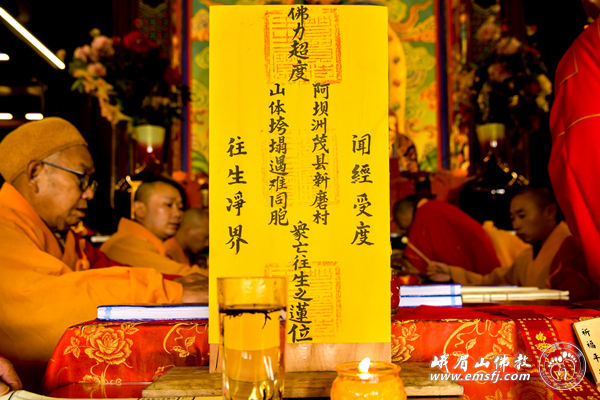 佛力超度
阿坝洲茂县新磨村
山体垮塌遇难同胞
眾亡往生之蓮位
闻經受度
往生淨界
祈福平
峨眉山佛教
www.emsfj.com